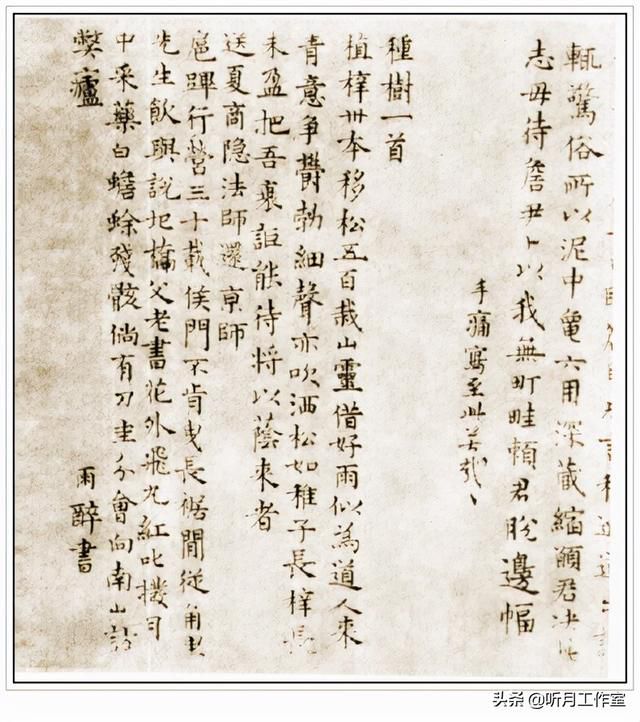 輒驚俗所以泥中龜六用深蔵縮願君决此
志毋待詹尹卜以我無町畦頼君盼邊幅
手痛寫至此苦哉
種樹一首
植梓卅本移松五百栽山靈借好雨似為道人来
青意争欝勃細聲亦吹洒松如稚子長梓長
未盈把吾衰詎能待将以蔭来者
送夏商隐法師還京師
扈蹕行營三十載侯門不肯曳長裾閒從角里
先生飲與說圯橋父老書花外飛丸紅叱撥月
中采藥白蟾蜍殘骸倘有刀圭分會向南山訪
獘廬
雨醉書
头条 @听月工作室